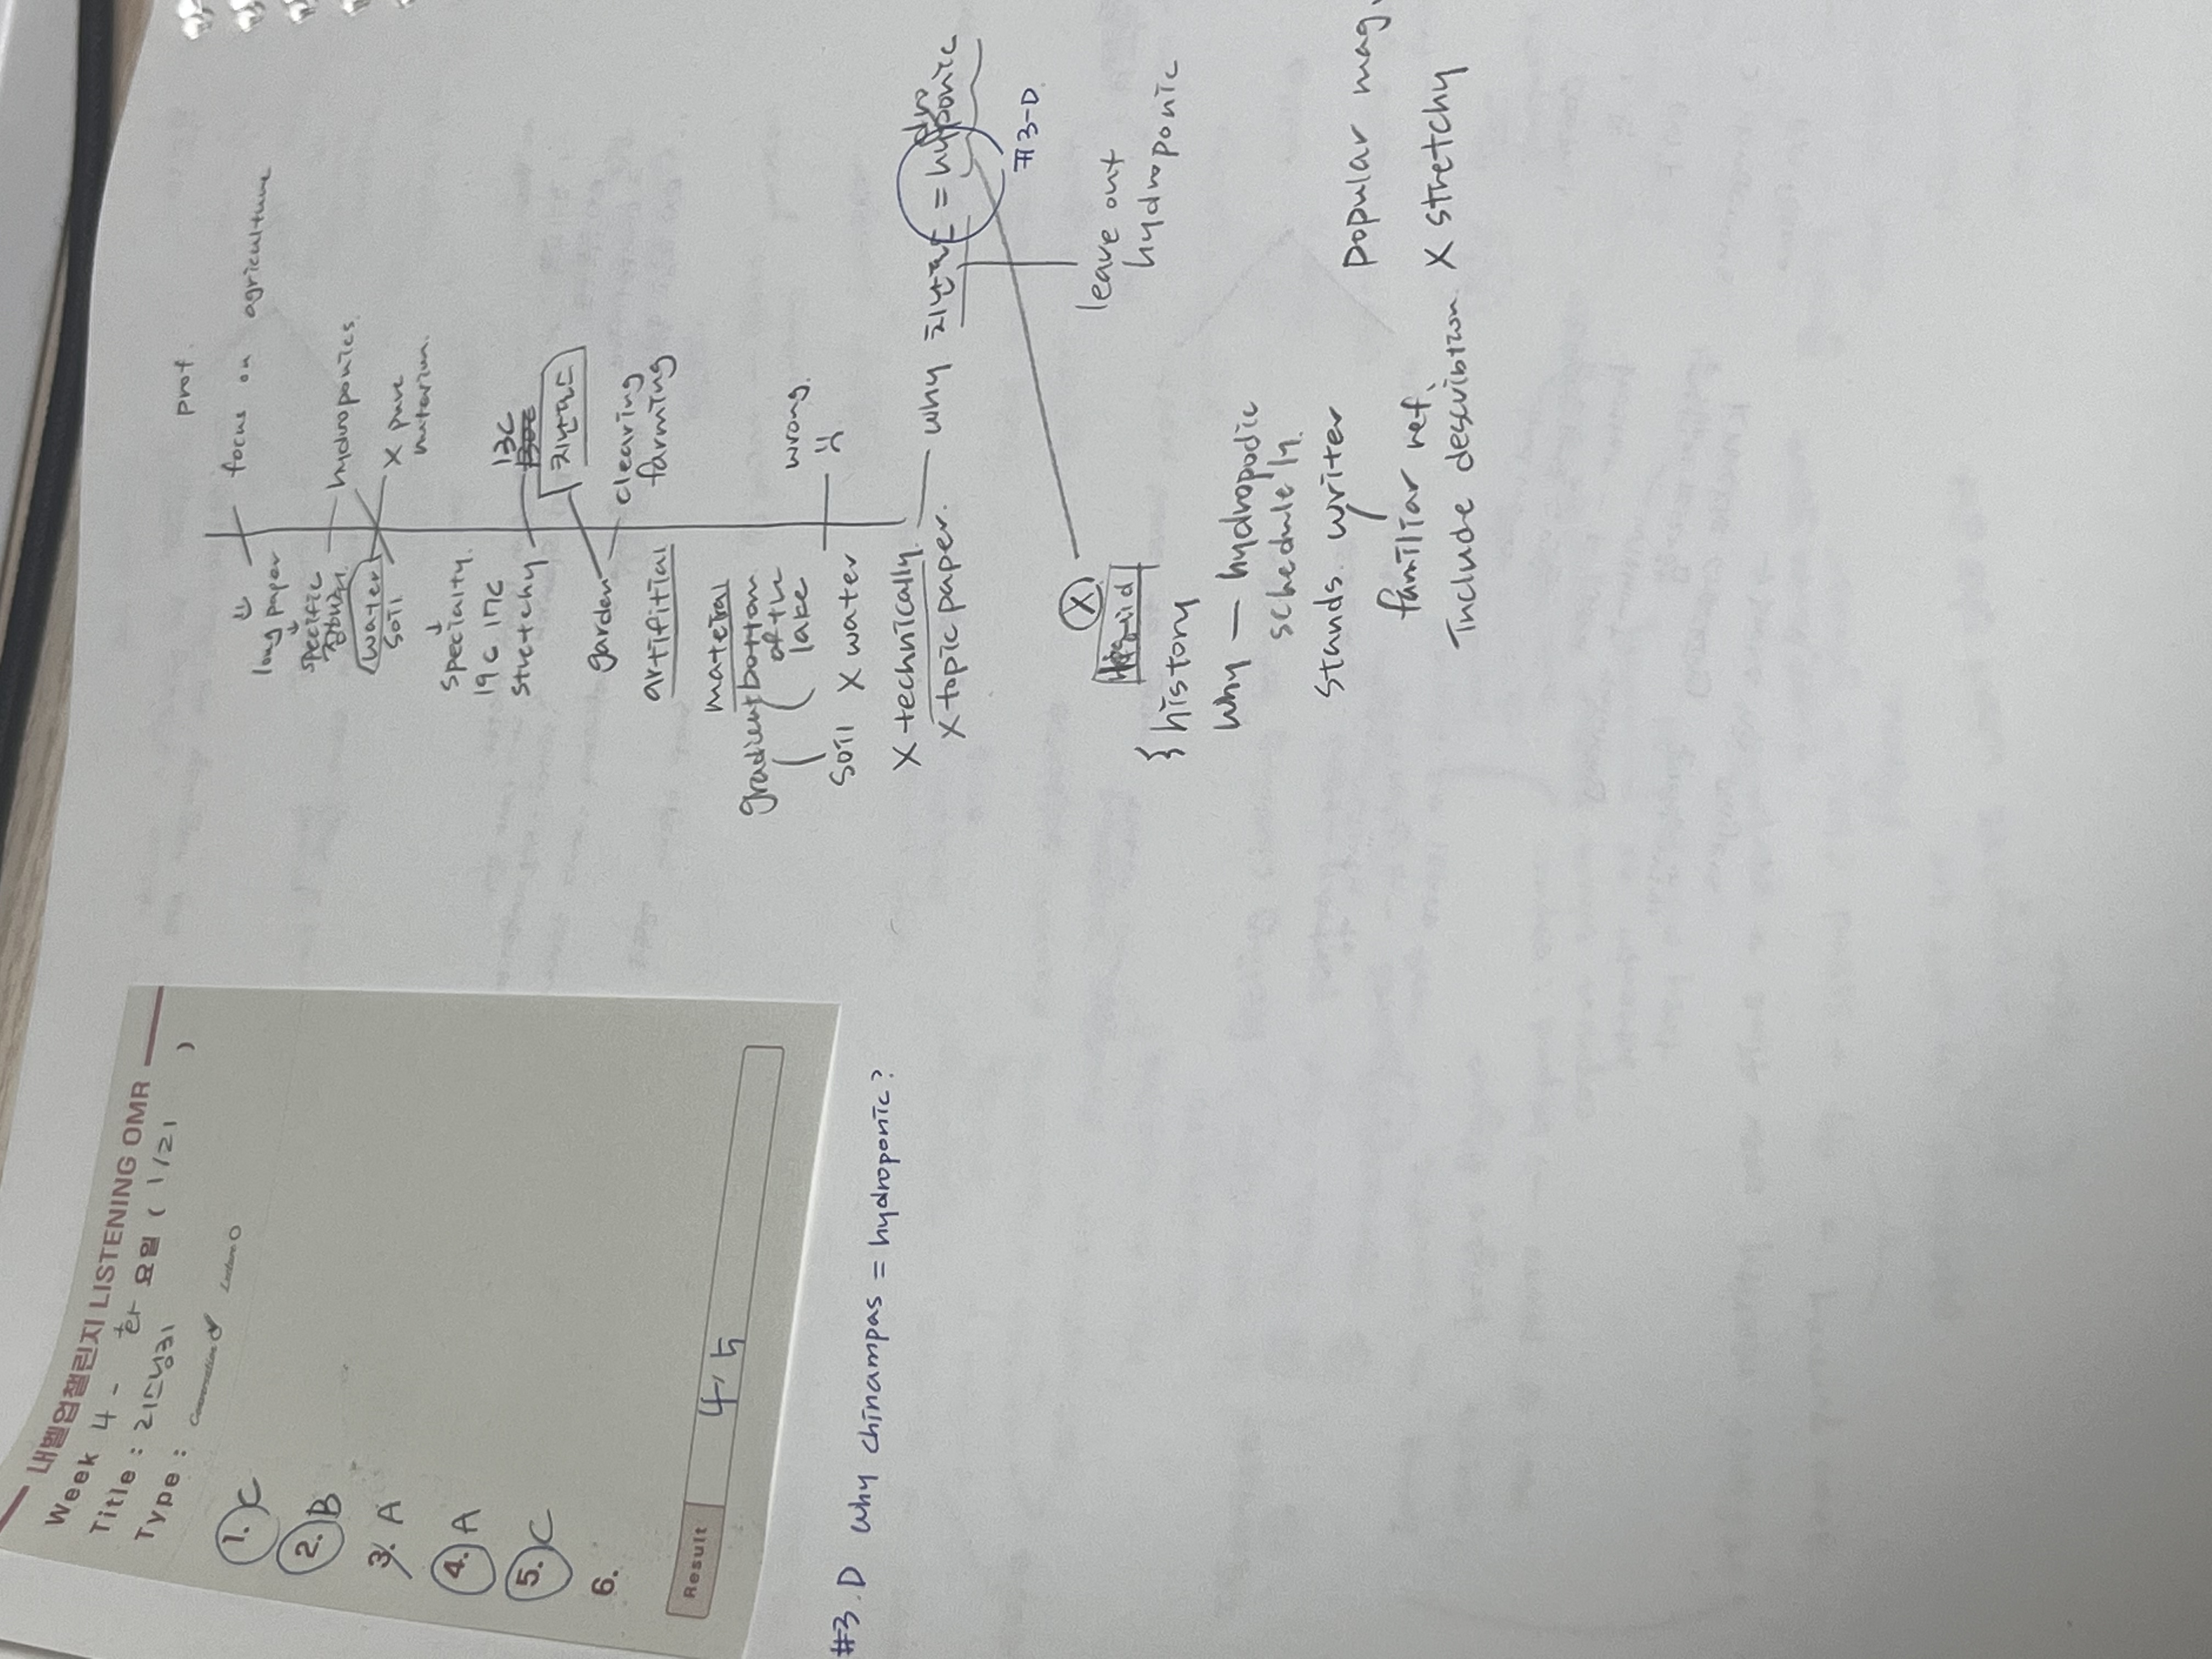 내벨업챌린지 LISTENING OMR
Week 4 - 화 요일 ( 1/21 )
Title : 리스닝리
Type : Conversation Lecture
1. C
2. B
3. A
4. A
5. C
6.
Result 4/5
#3. D why chinampas = hydroponic?
prof.
focus on agriculture
long paper
specific
hydroponics
water
soil
X pure
specialty
19C 17C
stretchy
13C
치난파드
garden
clearing
farming
artifitial
mateial
gradient bottom
of the
lake
wrong.
soil X water
X technically.
X topic paper.
why 치난파 = hyponic
dro
#3-D
leave out
hydroponic
X
{ history
why - hydropodic
schedule
stands. writer
familiar ref.
popular mag.
Include describtion X stretchy